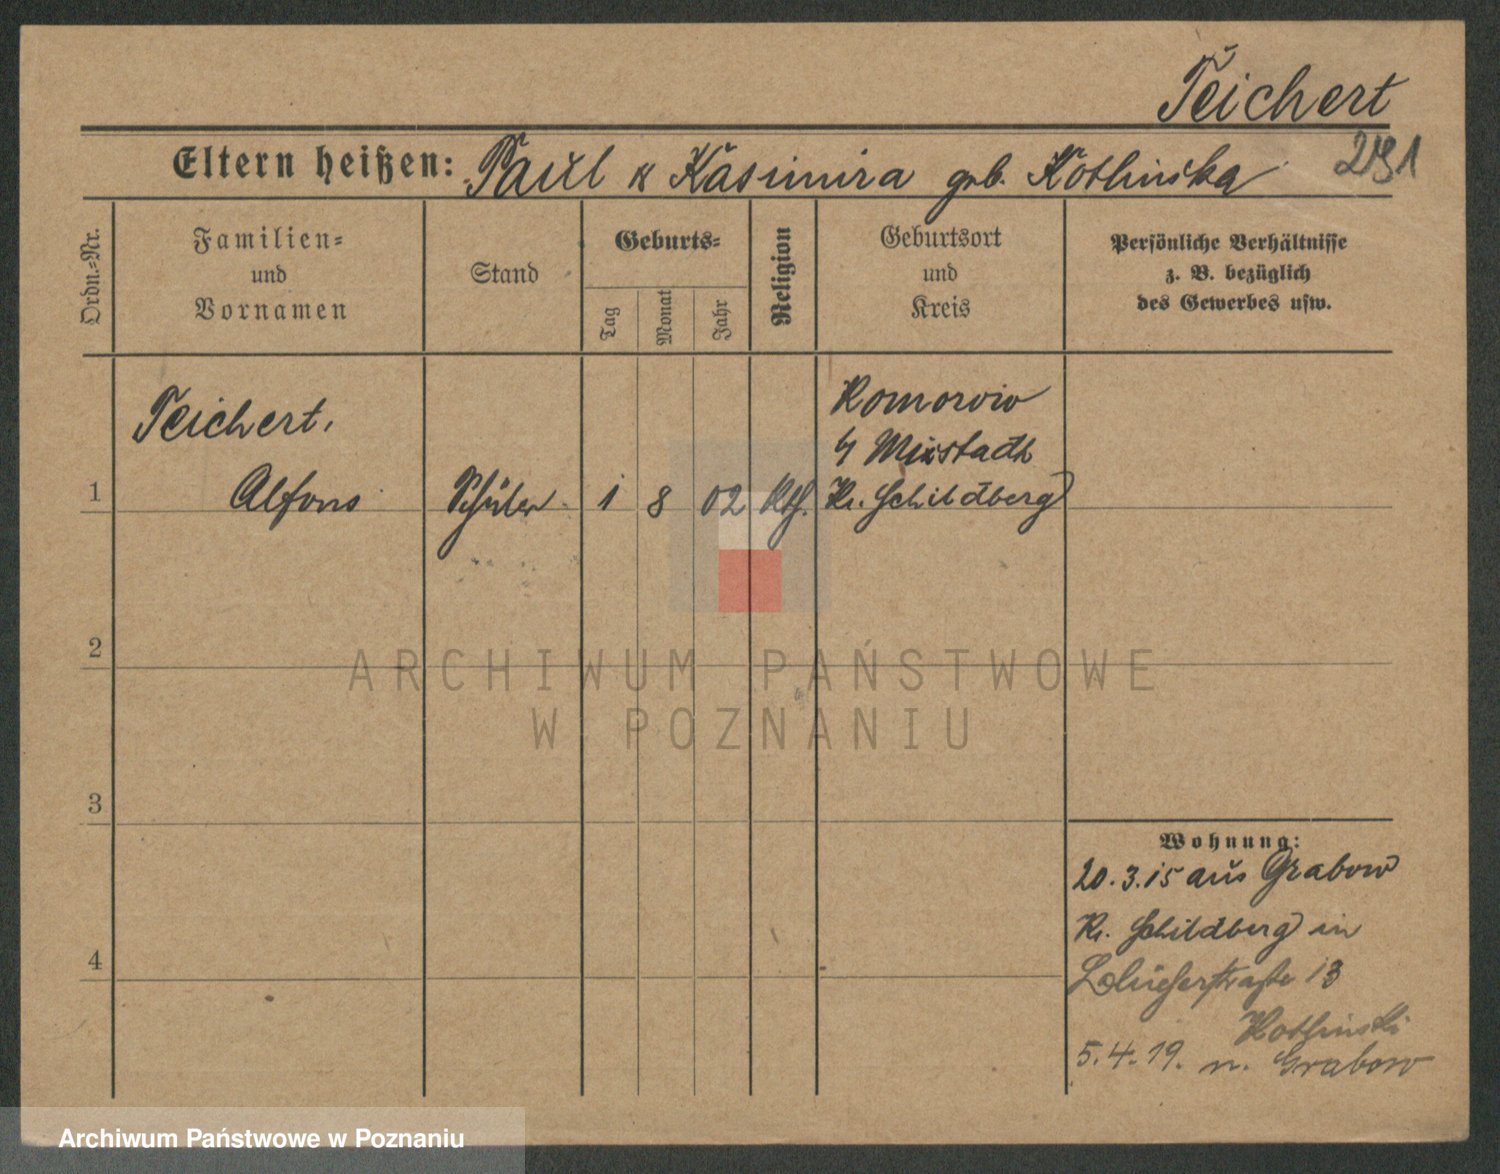 Teichert
291
Eltern heißen: Paul u Kasimira geb. Kotlinska
Ordn.-Nr.
Familien-
und
Vornamen
Stand
Geburts-
Tag
Monat
Jahr
Religion
Geburtsort
und
Kreis
Persönliche Verhältnisse
z. B. bezüglich
des Gewerbes usw.
Teichert,
1 Alfons Schüler 1 8 02 Kth.
Komorow
b/ Mixstadt
Kr. Schildberg
2
3
4
Wohnung:
20.3.15 aus Grabow
Kr. Schildberg in
13
Kotlinski
5.4.19. n. Grabow
ARCHIWUM PAŃSTWOWE
W POZNANIU
Archiwum Państwowe w Poznaniu